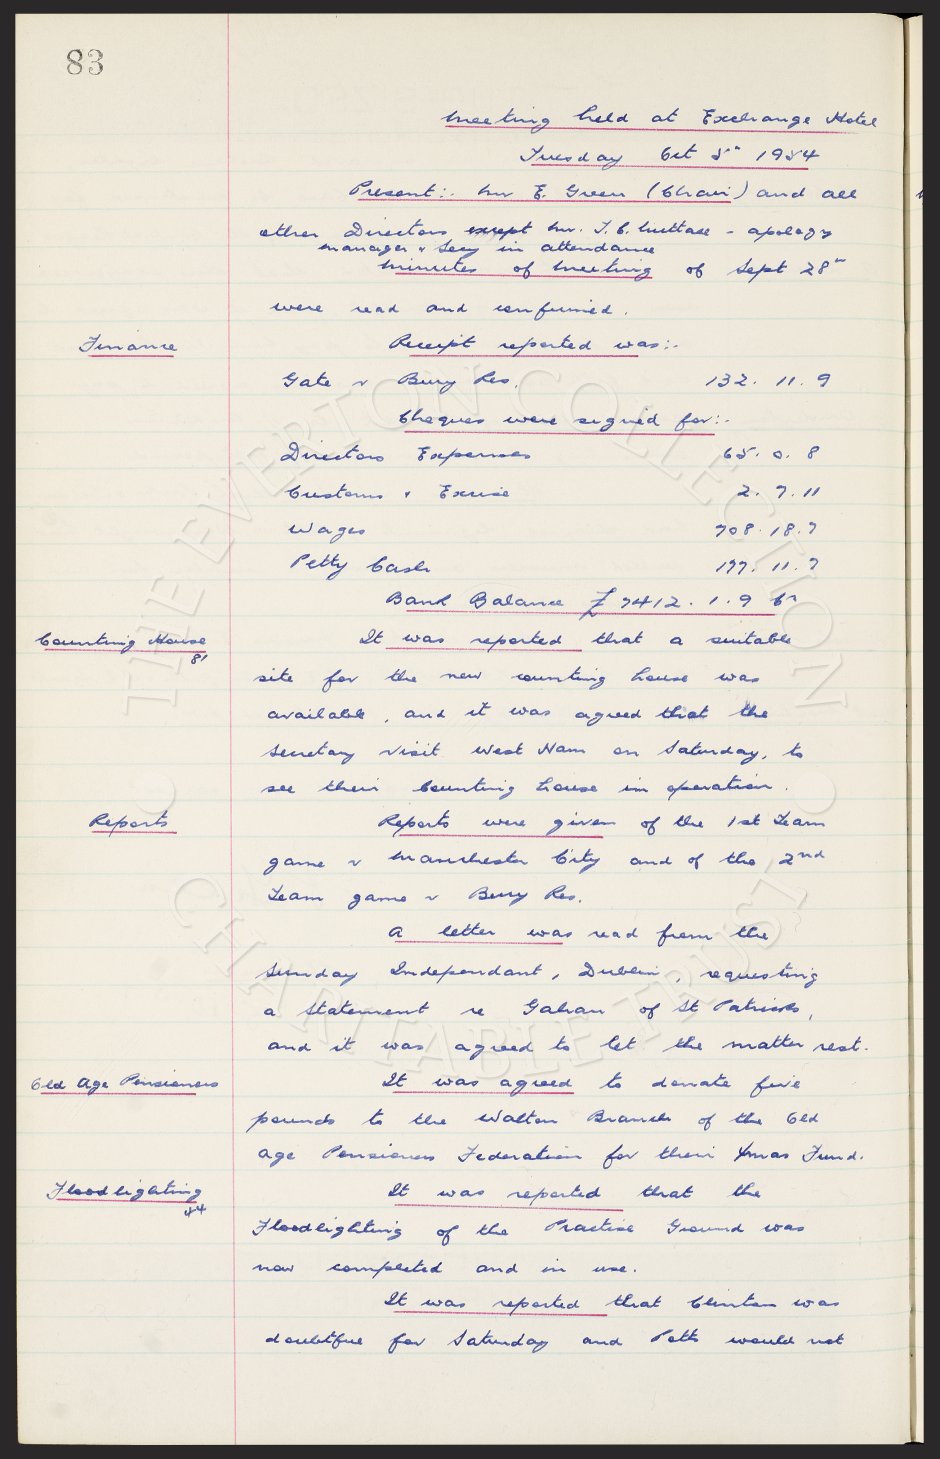 83
Meeting held at Exchange Hotel
Tuesday Oct 5th 1954
Present:- Mr E. Green (Chair) and all
other Directors except Mr. T. C. Nuttall - apology
Manager & Secy in attendance
Minutes of Meeting of Sept 28th
were read and confirmed.
Finance
Receipt reported was:-
Gate v Bury Res. 132. 11. 9
Cheques were signed for:-
Directors Expenses 65. 0. 8
Customs & Excise 2. 7. 11
Wages 708. 18. 7
Petty Cash 177. 11. 7
Bank Balance £7412. 1. 9 Cr
Counting House
81
It was reported that a suitable
site for the new counting house was
available, and it was agreed that the
Secretary visit West Ham on Saturday, to
see their Counting house in operation.
Reports
Reports were given of the 1st Team
game v Manchester City and of the 2nd
Team game v Bury Res.
A letter was read from the
Sunday Independant, Dublin, requesting
a Statement re of St Patricks,
and it was agreed to let the matter rest.
Old Age Pensioners
It was agreed to donate five
pounds to the Walton Branch of the Old
Age Pensioners Federation for their Xmas Fund.
Floodlighting
44
It was reported that the
Floodlighting of the Practise Ground was
now completed and in use.
It was reported that Clinton was
doubtful for Saturday and Potts would not
THE EVERTON COLLECTION
CHARITABLE TRUST